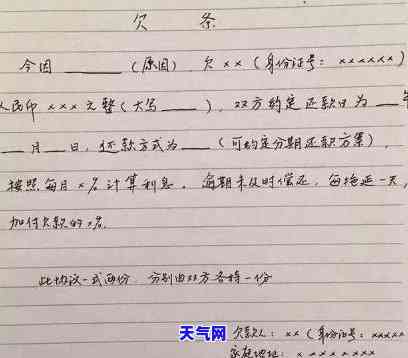 欠 条
今因______(原因),欠××(身份证号：××××××)
人民币×××元整(大写____),双方约定还款日为__年
__月__日,还款方式为____(可约定分期还款方案),
按照每月×%计算利息。逾期未及时偿还,每拖延一天,
加付欠款的×%.
此协议一式两份,分别由双方各持一份
欠款人：××(身份证号：×××××
家庭地址：××××××××
天气网